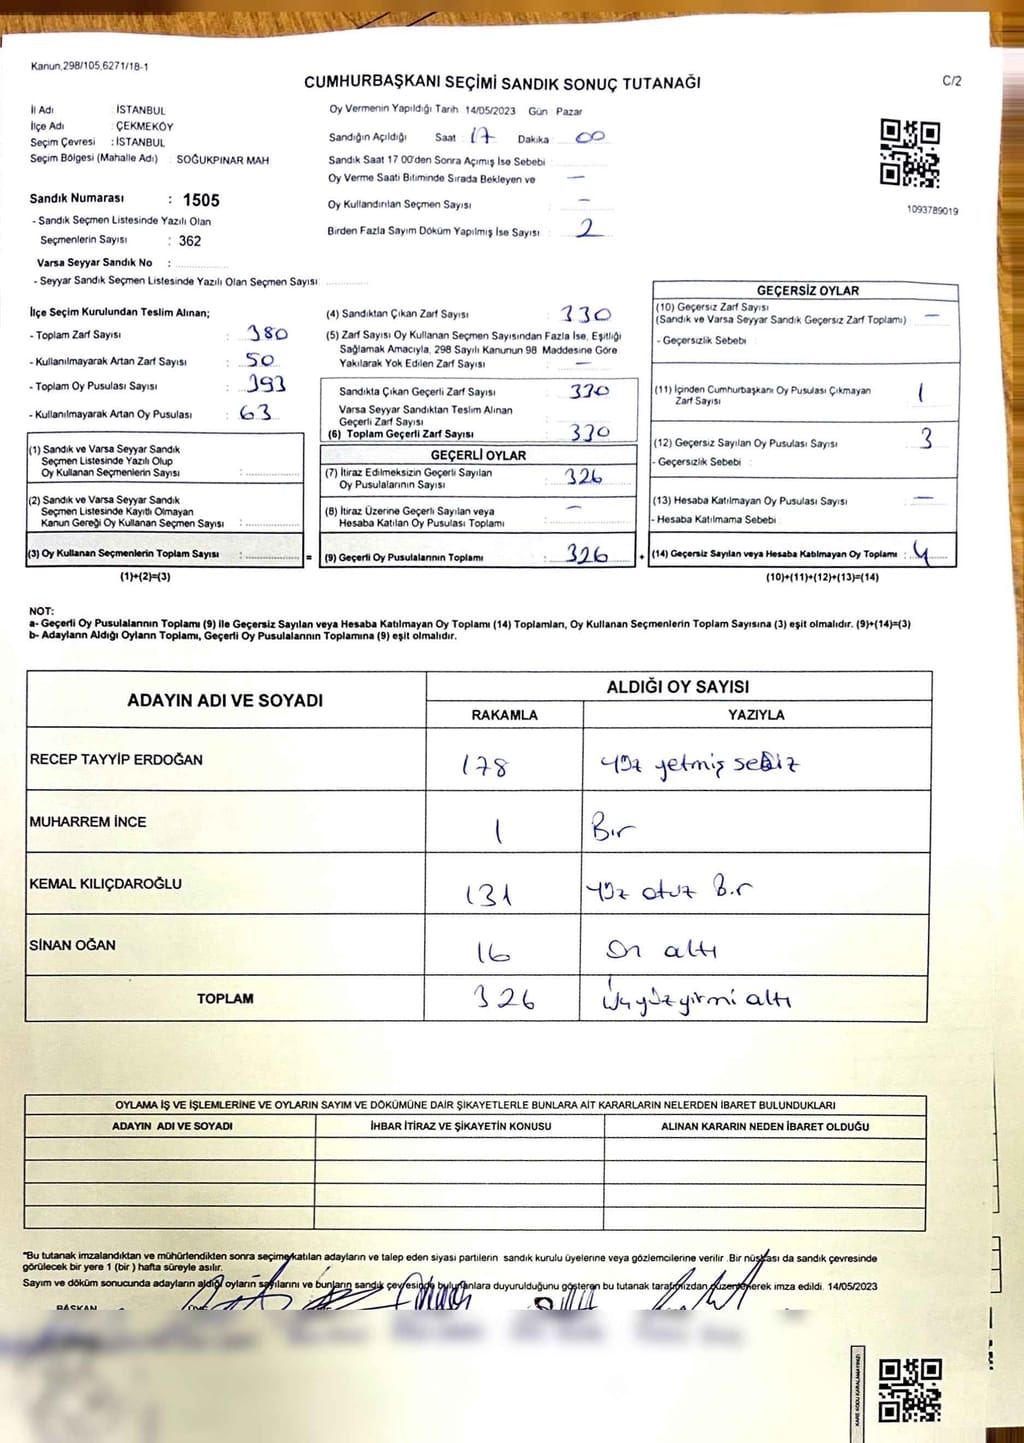 Kanun,298/105,6271/18-1
CUMHURBAŞKANI SEÇİMİ SANDIK SONUÇ TUTANAĞI
C/2
İl Adı : İSTANBUL
İlçe Adı : ÇEKMEKÖY
Seçim Çevresi : İSTANBUL
Seçim Bölgesi (Mahalle Adı) : SOĞUKPINAR MAH
Sandık Numarası : 1505
- Sandık Seçmen Listesinde Yazılı Olan
Seçmenlerin Sayısı : 362
Varsa Seyyar Sandık No :
- Seyyar Sandık Seçmen Listesinde Yazılı Olan Seçmen Sayısı:
Oy Vermenin Yapıldığı Tarih 14/05/2023 Gün Pazar
Sandığın Açıldığı Saat 17 Dakika : 00
Sandık Saat 17 00'den Sonra Açımış İse Sebebi :
Oy Verme Saati Bitiminde Sırada Bekleyen ve —
Oy Kullandırılan Seçmen Sayısı : —
Birden Fazla Sayım Döküm Yapılmış İse Sayısı : 2
1093789019
İlçe Seçim Kurulundan Teslim Alınan;
- Toplam Zarf Sayısı : 380
- Kullanılmayarak Artan Zarf Sayısı : 50
- Toplam Oy Pusulası Sayısı : 393
- Kullanılmayarak Artan Oy Pusulası : 63
(1) Sandık ve Varsa Seyyar Sandık
Seçmen Listesinde Yazılı Olup
Oy Kullanan Seçmenlerin Sayısı :
(2) Sandık ve Varsa Seyyar Sandık
Seçmen Listesinde Kayıtlı Olmayan
Kanun Gereği Oy Kullanan Seçmen Sayısı :
(3) Oy Kullanan Seçmenlerin Toplam Sayısı : =
(1)+(2)=(3)
(4) Sandıktan Çıkan Zarf Sayısı : 330
(5) Zarf Sayısı Oy Kullanan Seçmen Sayısından Fazla İse, Eşitliği
Sağlamak Amacıyla, 298 Sayılı Kanunun 98 Maddesine Göre
Yakılarak Yok Edilen Zarf Sayısı : —
Sandıkta Çıkan Geçerli Zarf Sayısı : 330
Varsa Seyyar Sandıktan Teslim Alınan
Geçerli Zarf Sayısı
(6) Toplam Geçerli Zarf Sayısı : 330
GEÇERLİ OYLAR
(7) İtiraz Edilmeksizin Geçerli Sayılan
Oy Pusulalarının Sayısı : 326
(8) İtiraz Üzerine Geçerli Sayılan veya
Hesaba Katılan Oy Pusulası Toplamı : —
(9) Geçerli Oy Pusulalarının Toplamı : 326 +
GEÇERSİZ OYLAR
(10) Geçersiz Zarf Sayısı
(Sandık ve Varsa Seyyar Sandık Geçersiz Zarf Toplamı) : —
- Geçersizlik Sebebi :
(11) İçinden Cumhurbaşkanı Oy Pusulası Çıkmayan
Zarf Sayısı : 1
(12) Geçersiz Sayılan Oy Pusulası Sayısı : 3
- Geçersizlik Sebebi :
(13) Hesaba Katılmayan Oy Pusulası Sayısı : —
- Hesaba Katılmama Sebebi :
(14) Geçersiz Sayılan veya Hesaba Katılmayan Oy Toplamı : 4
(10)+(11)+(12)+(13)=(14)
NOT:
a- Geçerli Oy Pusulalarının Toplamı (9) ile Geçersiz Sayılan veya Hesaba Katılmayan Oy Toplamı (14) Toplamları, Oy Kullanan Seçmenlerin Toplam Sayısına (3) eşit olmalıdır. (9)+(14)=(3)
b- Adayların Aldığı Oyların Toplamı, Geçerli Oy Pusulalarının Toplamına (9) eşit olmalıdır.
ADAYIN ADI VE SOYADI ALDIĞI OY SAYISI
RAKAMLA YAZIYLA
RECEP TAYYİP ERDOĞAN 178 yüz yetmiş sekiz
MUHARREM İNCE 1 Bir
KEMAL KILIÇDAROĞLU 131 yüz otuz Bir
SİNAN OĞAN 16 On altı
TOPLAM 326 üçyüzyirmi altı
OYLAMA İŞ VE İŞLEMLERİNE VE OYLARIN SAYIM VE DÖKÜMÜNE DAİR ŞİKAYETLERLE BUNLARA AİT KARARLARIN NELERDEN İBARET BULUNDUKLARI
ADAYIN ADI VE SOYADI İHBAR İTİRAZ VE ŞİKAYETİN KONUSU ALINAN KARARIN NEDEN İBARET OLDUĞU
"Bu tutanak imzalandıktan ve mühürlendikten sonra seçime katılan adayların ve talep eden siyasi partilerin sandık kurulu üyelerine veya gözlemcilerine verilir .Bir nüshası da sandık çevresinde
görülecek bir yere 1 (bir ) hafta süreyle asılır.
Sayım ve döküm sonucunda adayların aldığı oyların sayılarını ve bunların sandık çevresinde bulunanlara duyurulduğunu gösteren bu tutanak tarafımızdan düzenlenerek imza edildi. 14/05/2023
BAŞKAN
KARE KODU KARALAMAYINIZ!